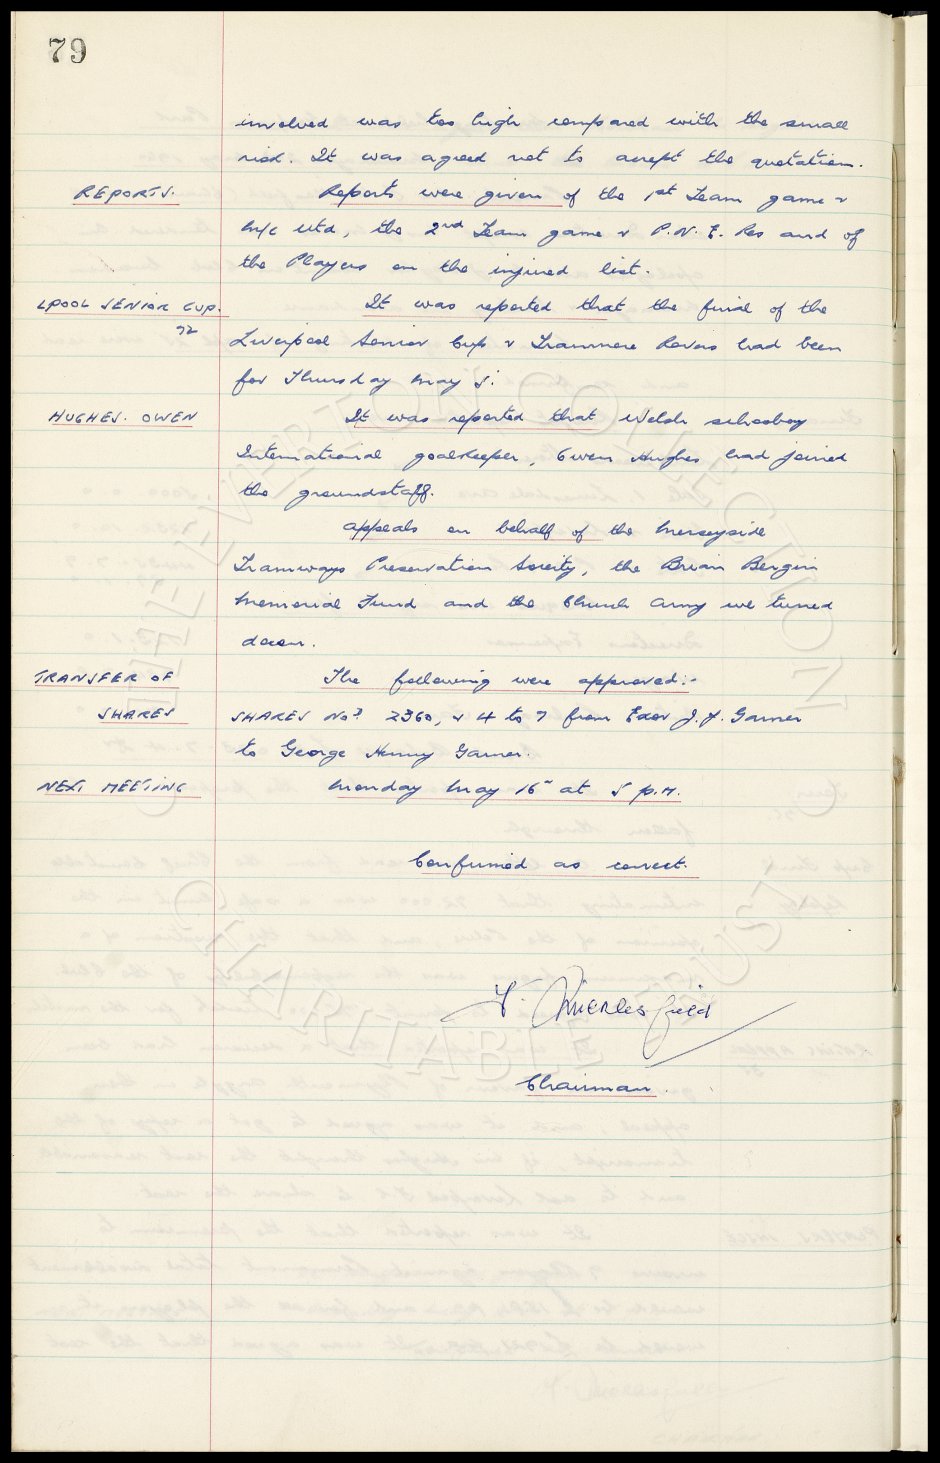 79
involved was too high compared with the small
risk. It was agreed not to accept the quotation.
REPORTS. Reports were given of the 1st Team game v
M/c Utd, the 2nd Team game v P.N.E. Res and of
the Players on the injured list.
LPOOL SENIOR CUP. It was reported that the final of the
72 Liverpool Senior Cup v Tranmere Rovers had been
for Thursday May 5.
HUGHES. OWEN It was reported that Welsh schoolboy
International goalkeeper, Owen Hughes had joined
the groundstaff.
Appeals on behalf of the Merseyside
Tramways Preservation Society, the Brian Bergin
Memorial Fund and the Church Army we turned
down.
TRANSFER OF The following were approved:-
SHARES SHARES Nos 2360, & 4 to 7 from Exor J. Garner
to George Henry Garner.
NEXT MEETING Monday May 16 at 5 p.m.
Confirmed as correct.
Chairman.
THE EVERTON COLLECTION
CHARITABLE TRUST